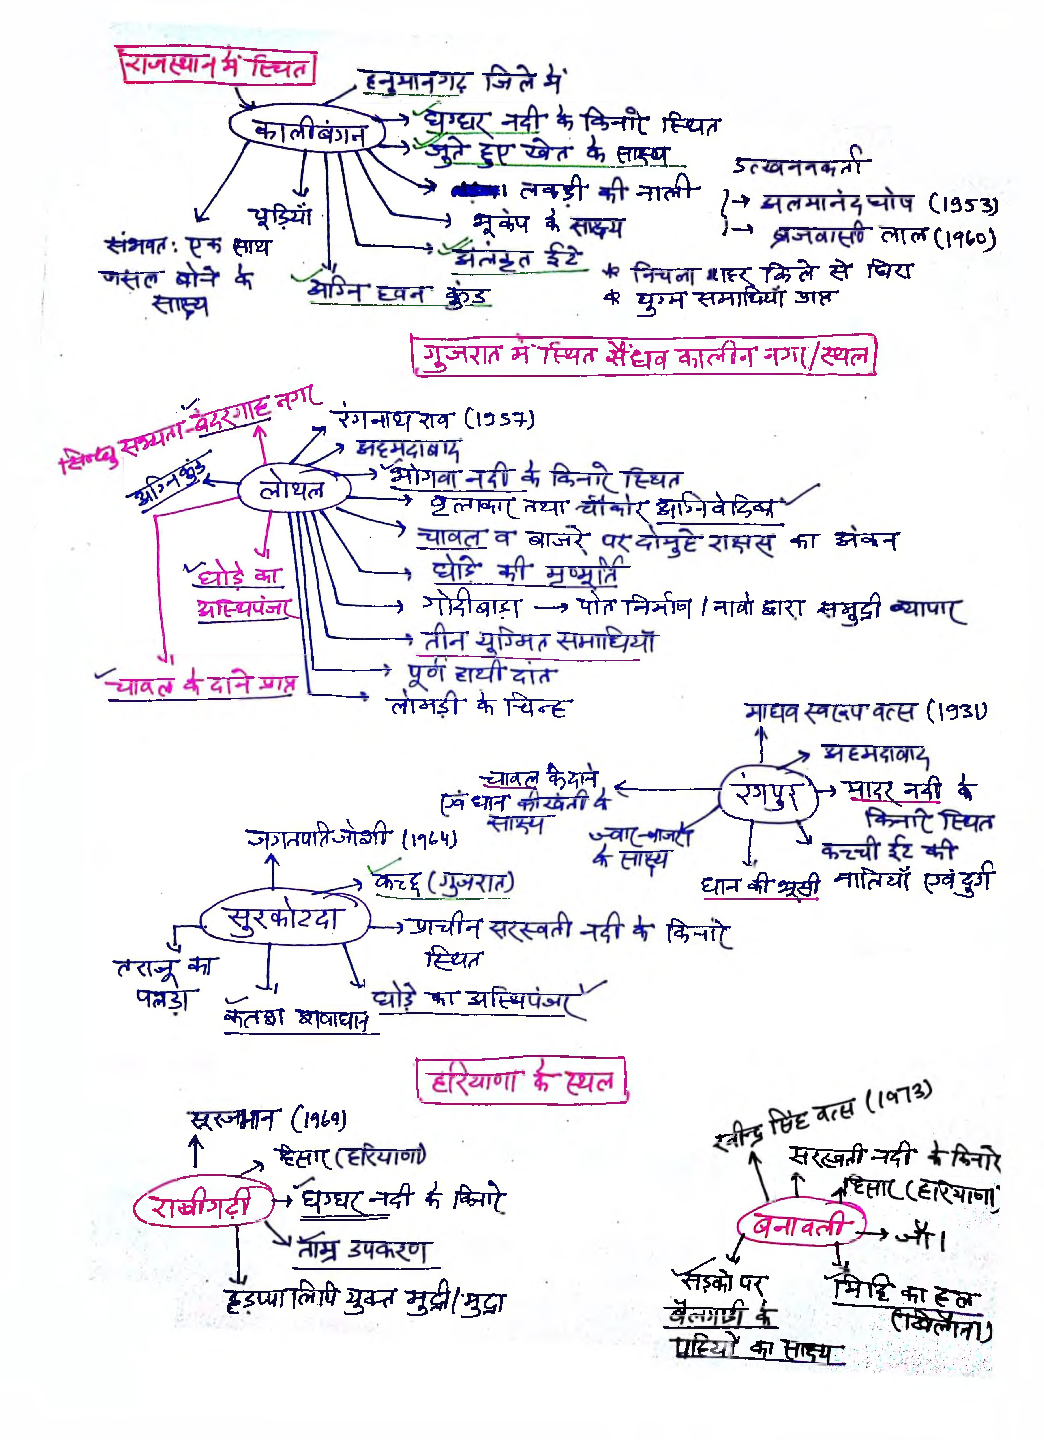 राजस्थान में स्थित
हनुमानगढ़ जिले में
कालीबंगन
घग्घर नदी के किनारे स्थित
जुते हुए खेत के साक्ष्य
लकड़ी की नाली
भूकंप के साक्ष्य
अलंकृत ईंटे
चूड़ियाँ
संभवत: एक साथ
फसल बोने के
साक्ष्य
अग्नि हवन कुंड
उत्खननकर्ता
अलमानंद घोष (1953)
ब्रजवासी लाल (1960)
* निचला शहर किले से घिरा
* युग्म समाधियाँ प्राप्त
गुजरात में स्थित सैंधव कालीन नगर/स्थल
सिन्धु सभ्यता-बंदरगाह नगर
रंगनाथ राव (1957)
अहमदाबाद
अग्निकुंड
लोथल
भोगवा नदी के किनारे स्थित
वृत्ताकार तथा चौकोर अग्निवेदिका
चावल व बाजरे पर दोमुंहे राक्षस का अंकन
घोड़े की मृण्मूर्ति
घोड़े का
अस्थिपंजर
गोदीबाड़ा → पोत निर्माण / नावों द्वारा समुद्री व्यापार
तीन युग्मित समाधियाँ
पूर्ण हाथी दांत
चावल के दाने प्राप्त
लोमड़ी के चिन्ह
माधव स्वरूप वत्स (1931)
अहमदावाद
रंगपुर
मादर नदी के
किनारे स्थित
चावल के दाने
एवं धान की खेती के
साक्ष्य
ज्वार-बाजरे
के साक्ष्य
धान की भूसी
कच्ची ईंट की
नालियाँ एवं दुर्ग
जगतपति जोशी (1964)
कच्छ (गुजरात)
सुरकोटदा
प्राचीन सरस्वती नदी के किनारे
स्थित
तराजू का
पलड़ा
कलश शवाधान
घोड़े का अस्थिपंजर
हरियाणा के स्थल
सूरजभान (1969)
हिसार (हरियाणा)
राखीगढ़ी
घग्घर नदी के किनारे
ताम्र उपकरण
हड़प्पा लिपि युक्त मुद्री/मुद्रा
रवीन्द्र सिंह वत्स (1973)
सरस्वती नदी के किनारे
हिसार (हरियाणा)
बनावली
जौ।
सड़कों पर
बैलगाड़ी के
पहियों का साक्ष्य
मिट्टि का हल
(खिलौना)